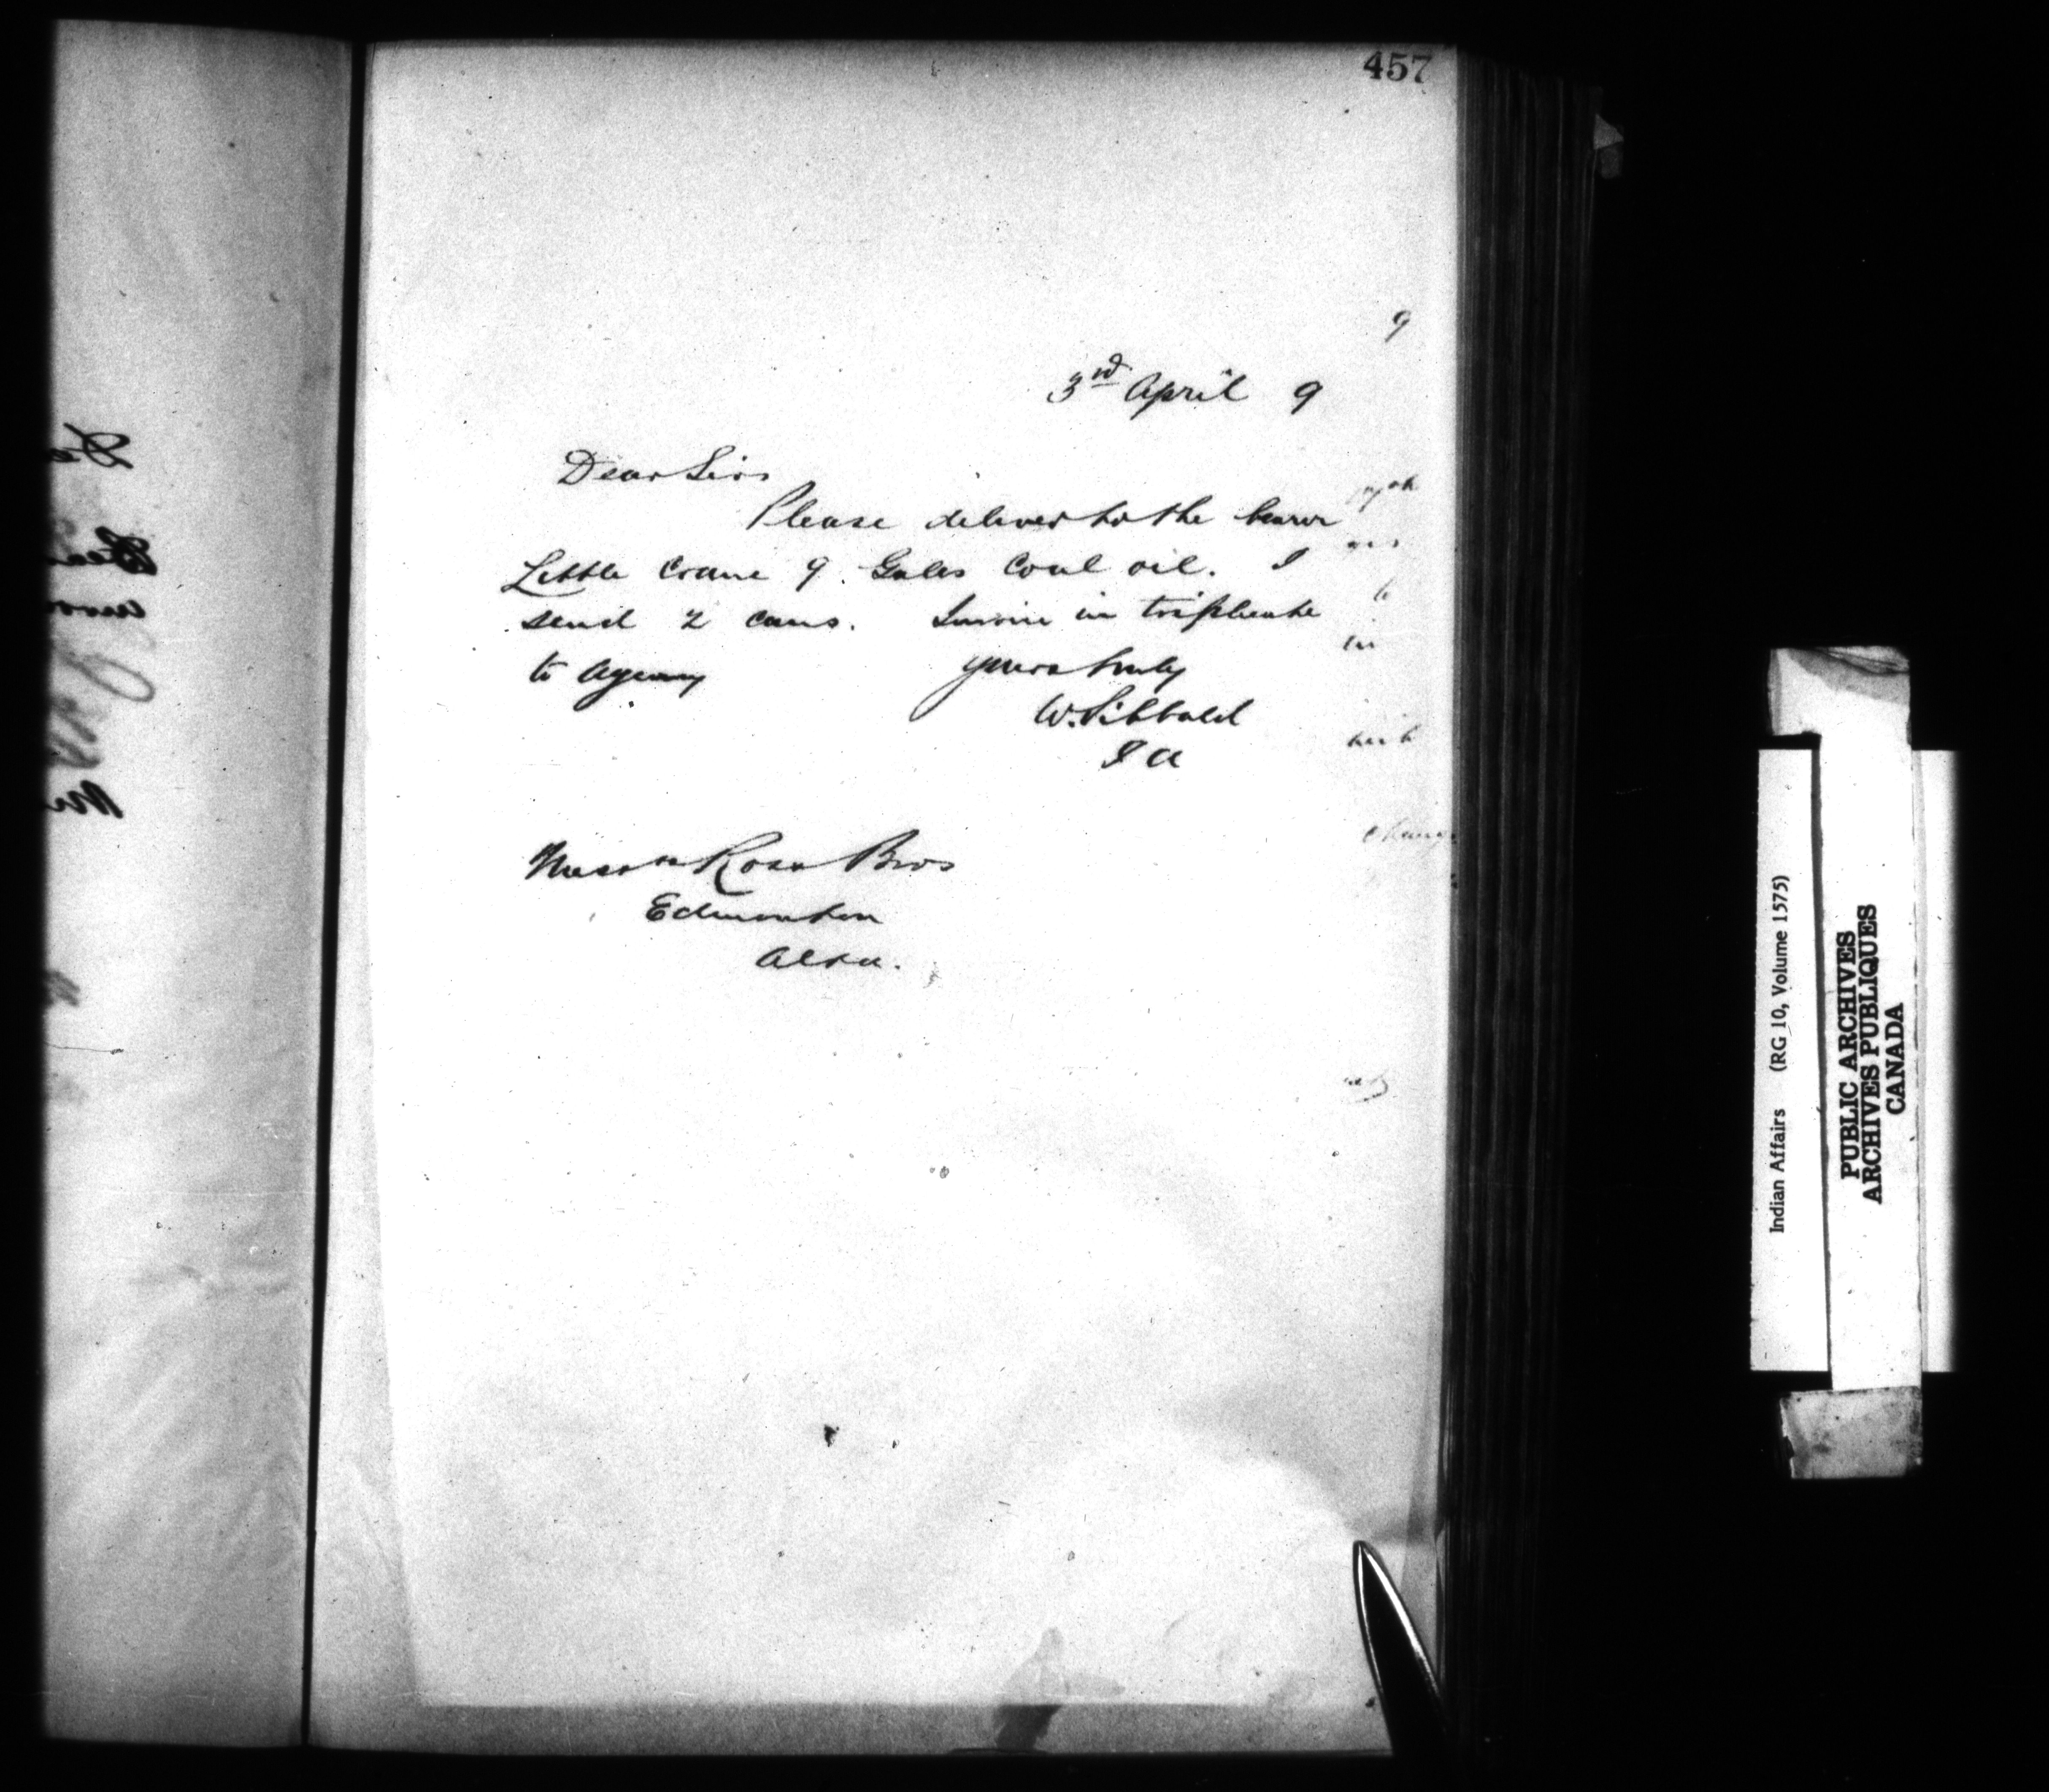 457
9
3rd April 9
Dear Sirs
Please deliver to the bearer
Little Crane 9 Gals Coal oil. I
send 2 cans. Invoice in triplicate
to Agency yours truly
W. Sibbald
I A
Messrs Ross Bros
Edmonton
Alta.
Indian Affairs (RG 10, Volume 1575)
PUBLIC ARCHIVES
ARCHIVES PUBLIQUES
CANADA